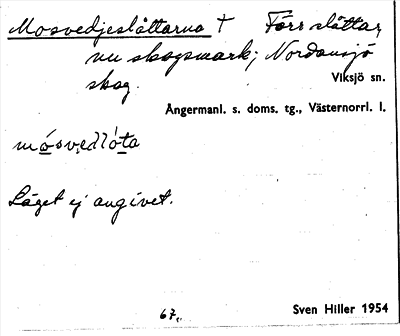 Mosvedjeslåttarna † Förr slåttar,
nu skogsmark; Nordansjö
skog.
Viksjö sn.
Ångermanl. s. doms. tg., Västernorrl. l.
mósvedlóta
Läget ej angivet.
67.
Sven Hiller 1954